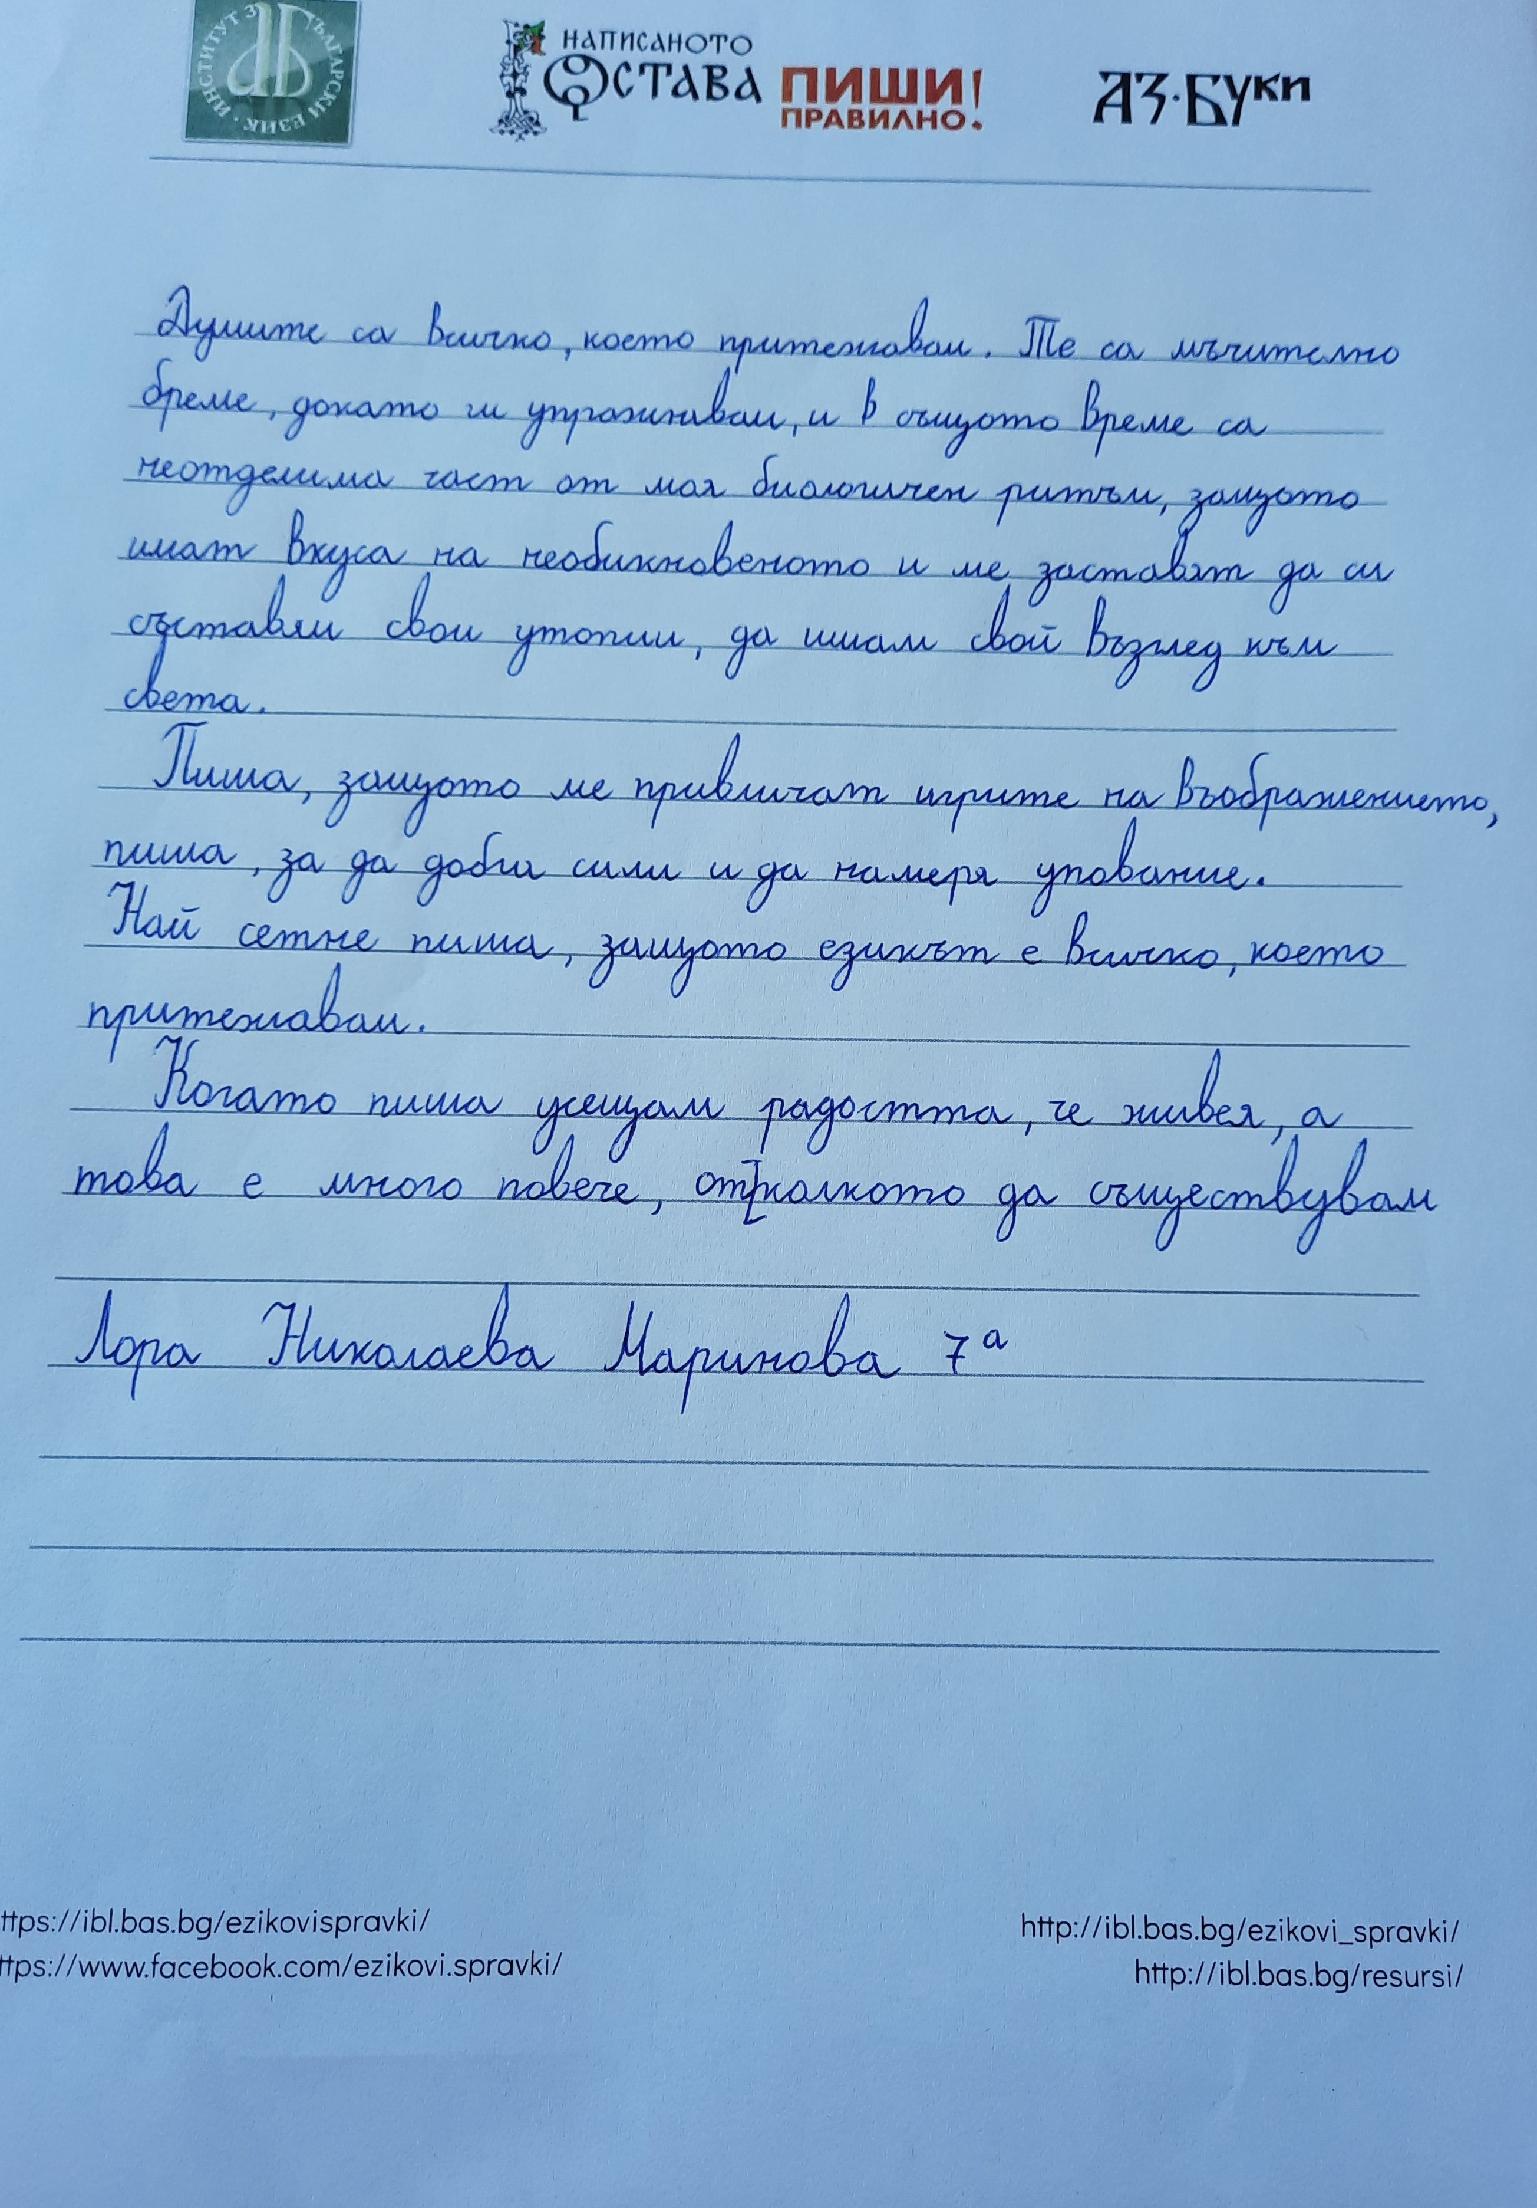 ИНСТИТУТ ЗА БЪЛГАРСКИ ЕЗИК
НАПИСАНОТО
ОСТАВА ПИШИ!
ПРАВИЛНО!
АЗ·БУКИ
Думите са всичко, което притежавам. Те са мъчително
бреме, докато ги упражнявам, и в същото време са
неотделима част от моя биологичен ритъм, защото
имат вкуса на необикновеното и ме заставят да си
съставям свои утопии, да имам свой възглед към
света.
Пиша, защото ме привличат игрите на въображението,
пиша, за да добия сили и да намеря упование.
Най сетне пиша, защото езикът е всичко, което
притежавам.
Когато пиша усещам радостта, че живея, а
това е много повече, отколкото да съществувам
Лора Николаева Маринова 7а
ttps://ibl.bas.bg/ezikovispravki/ http://ibl.bas.bg/ezikovi_spravki/
ttps://www.facebook.com/ezikovi.spravki/ http://ibl.bas.bg/resursi/